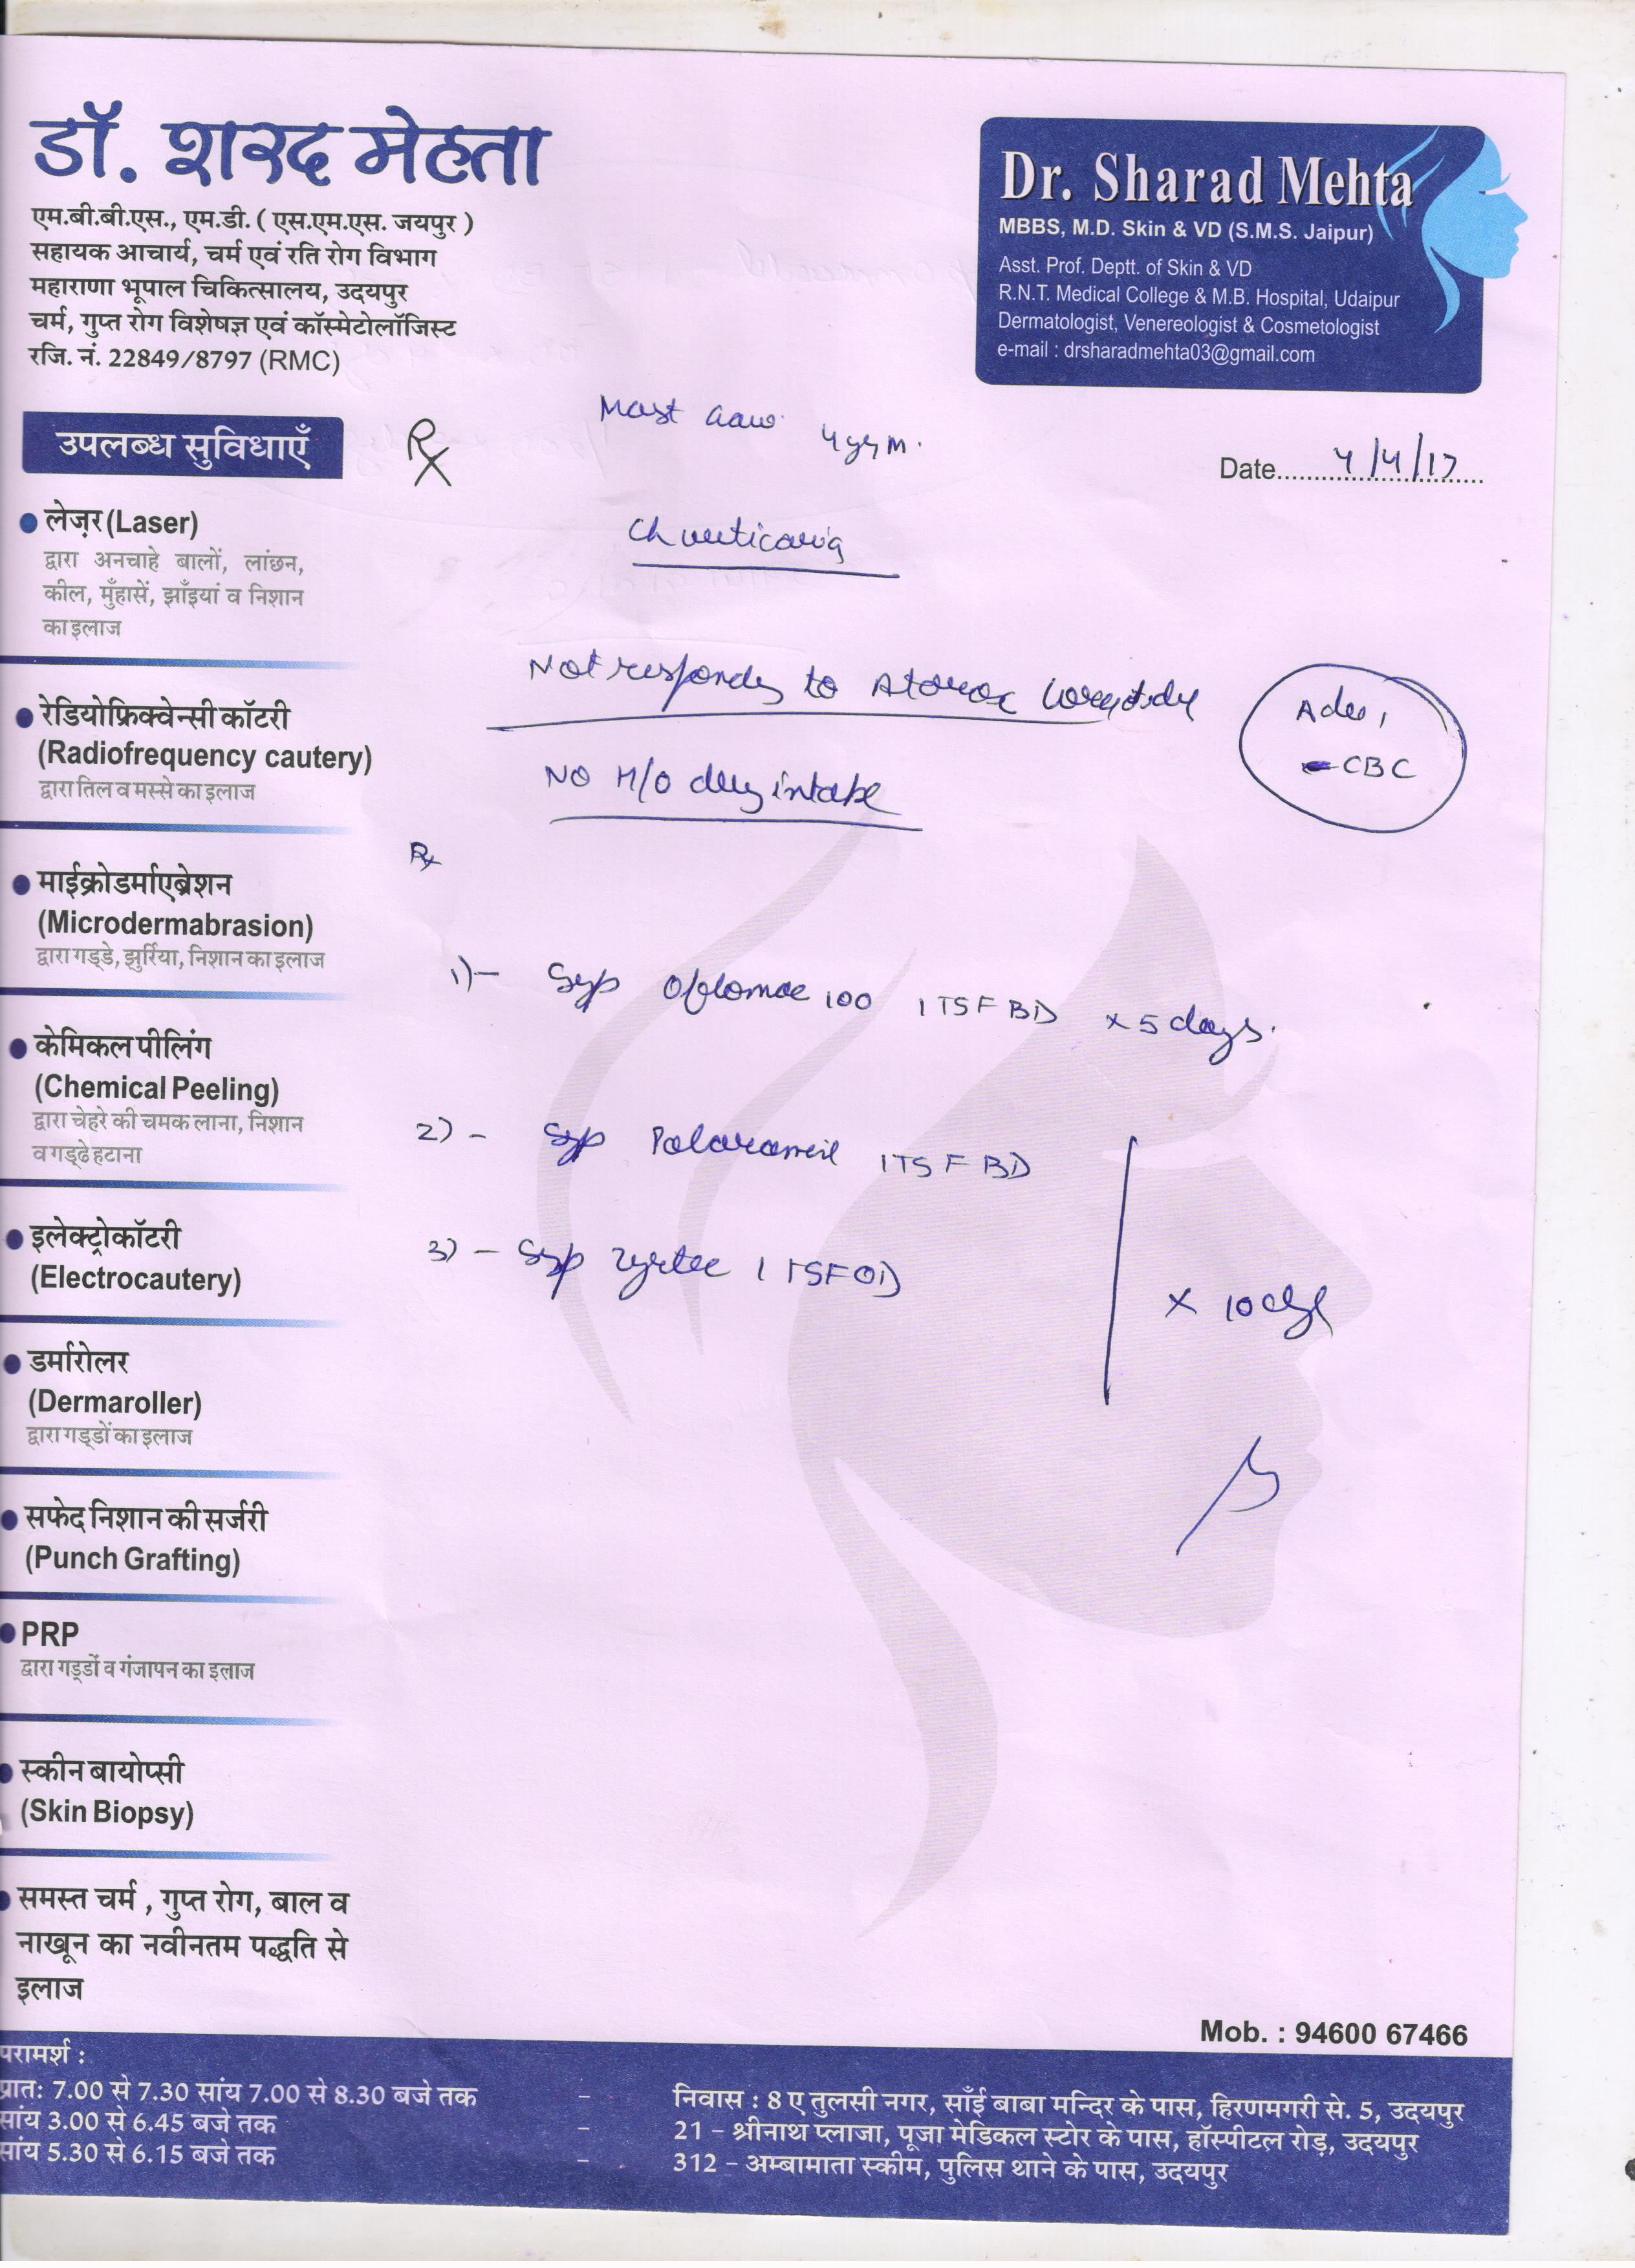 डॉ. शरद मेहता
एम.बी.बी.एस., एम.डी. ( एस.एम.एस. जयपुर )
सहायक आचार्य, चर्म एवं रति रोग विभाग
महाराणा भूपाल चिकित्सालय, उदयपुर
चर्म, गुप्त रोग विशेषज्ञ एवं कॉस्मेटोलॉजिस्ट
रजि. नं. 22849/8797 (RMC)
Dr. Sharad Mehta
MBBS, M.D. Skin & VD (S.M.S. Jaipur)
Asst. Prof. Deptt. of Skin & VD
R.N.T. Medical College & M.B. Hospital, Udaipur
Dermatologist, Venereologist & Cosmetologist
e-mail : drsharadmehta03@gmail.com
Mast
Date 4/4/17
Rx
Ch urticaria
Not responding to Atarax
No H/o drug intake
Adv,
- CBC
Rx
1) - Syp 100 1 TSF BD x 5 days.
2) - Syp 1 TSF BD
3) - Syp Zyrtec 1 TSF OD
x 10 days
उपलब्ध सुविधाएँ
लेज़र (Laser)
द्वारा अनचाहे बालों, लांछन,
कील, मुँहासें, झाँइयां व निशान
का इलाज
रेडियोफ्रिक्वेन्सी कॉटरी
(Radiofrequency cautery)
द्वारा तिल व मस्से का इलाज
माईक्रोडर्माएब्रेशन
(Microdermabrasion)
द्वारा गड्डे, झुर्रिया, निशान का इलाज
केमिकल पीलिंग
(Chemical Peeling)
द्वारा चेहरे की चमक लाना, निशान
व गड्ढे हटाना
इलेक्ट्रोकॉटरी
(Electrocautery)
डर्मारोलर
(Dermaroller)
द्वारा गड्डों का इलाज
सफेद निशान की सर्जरी
(Punch Grafting)
PRP
द्वारा गड्डों व गंजापन का इलाज
स्कीन बायोप्सी
(Skin Biopsy)
समस्त चर्म , गुप्त रोग, बाल व
नाखून का नवीनतम पद्धति से
इलाज
Mob. : 94600 67466
परामर्श :
प्रातः 7.00 से 7.30 सांय 7.00 से 8.30 बजे तक - निवास : 8 ए तुलसी नगर, साँई बाबा मन्दिर के पास, हिरणमगरी से. 5, उदयपुर
सांय 3.00 से 6.45 बजे तक - 21 - श्रीनाथ प्लाजा, पूजा मेडिकल स्टोर के पास, हॉस्पीटल रोड़, उदयपुर
सांय 5.30 से 6.15 बजे तक - 312 - अम्बामाता स्कीम, पुलिस थाने के पास, उदयपुर